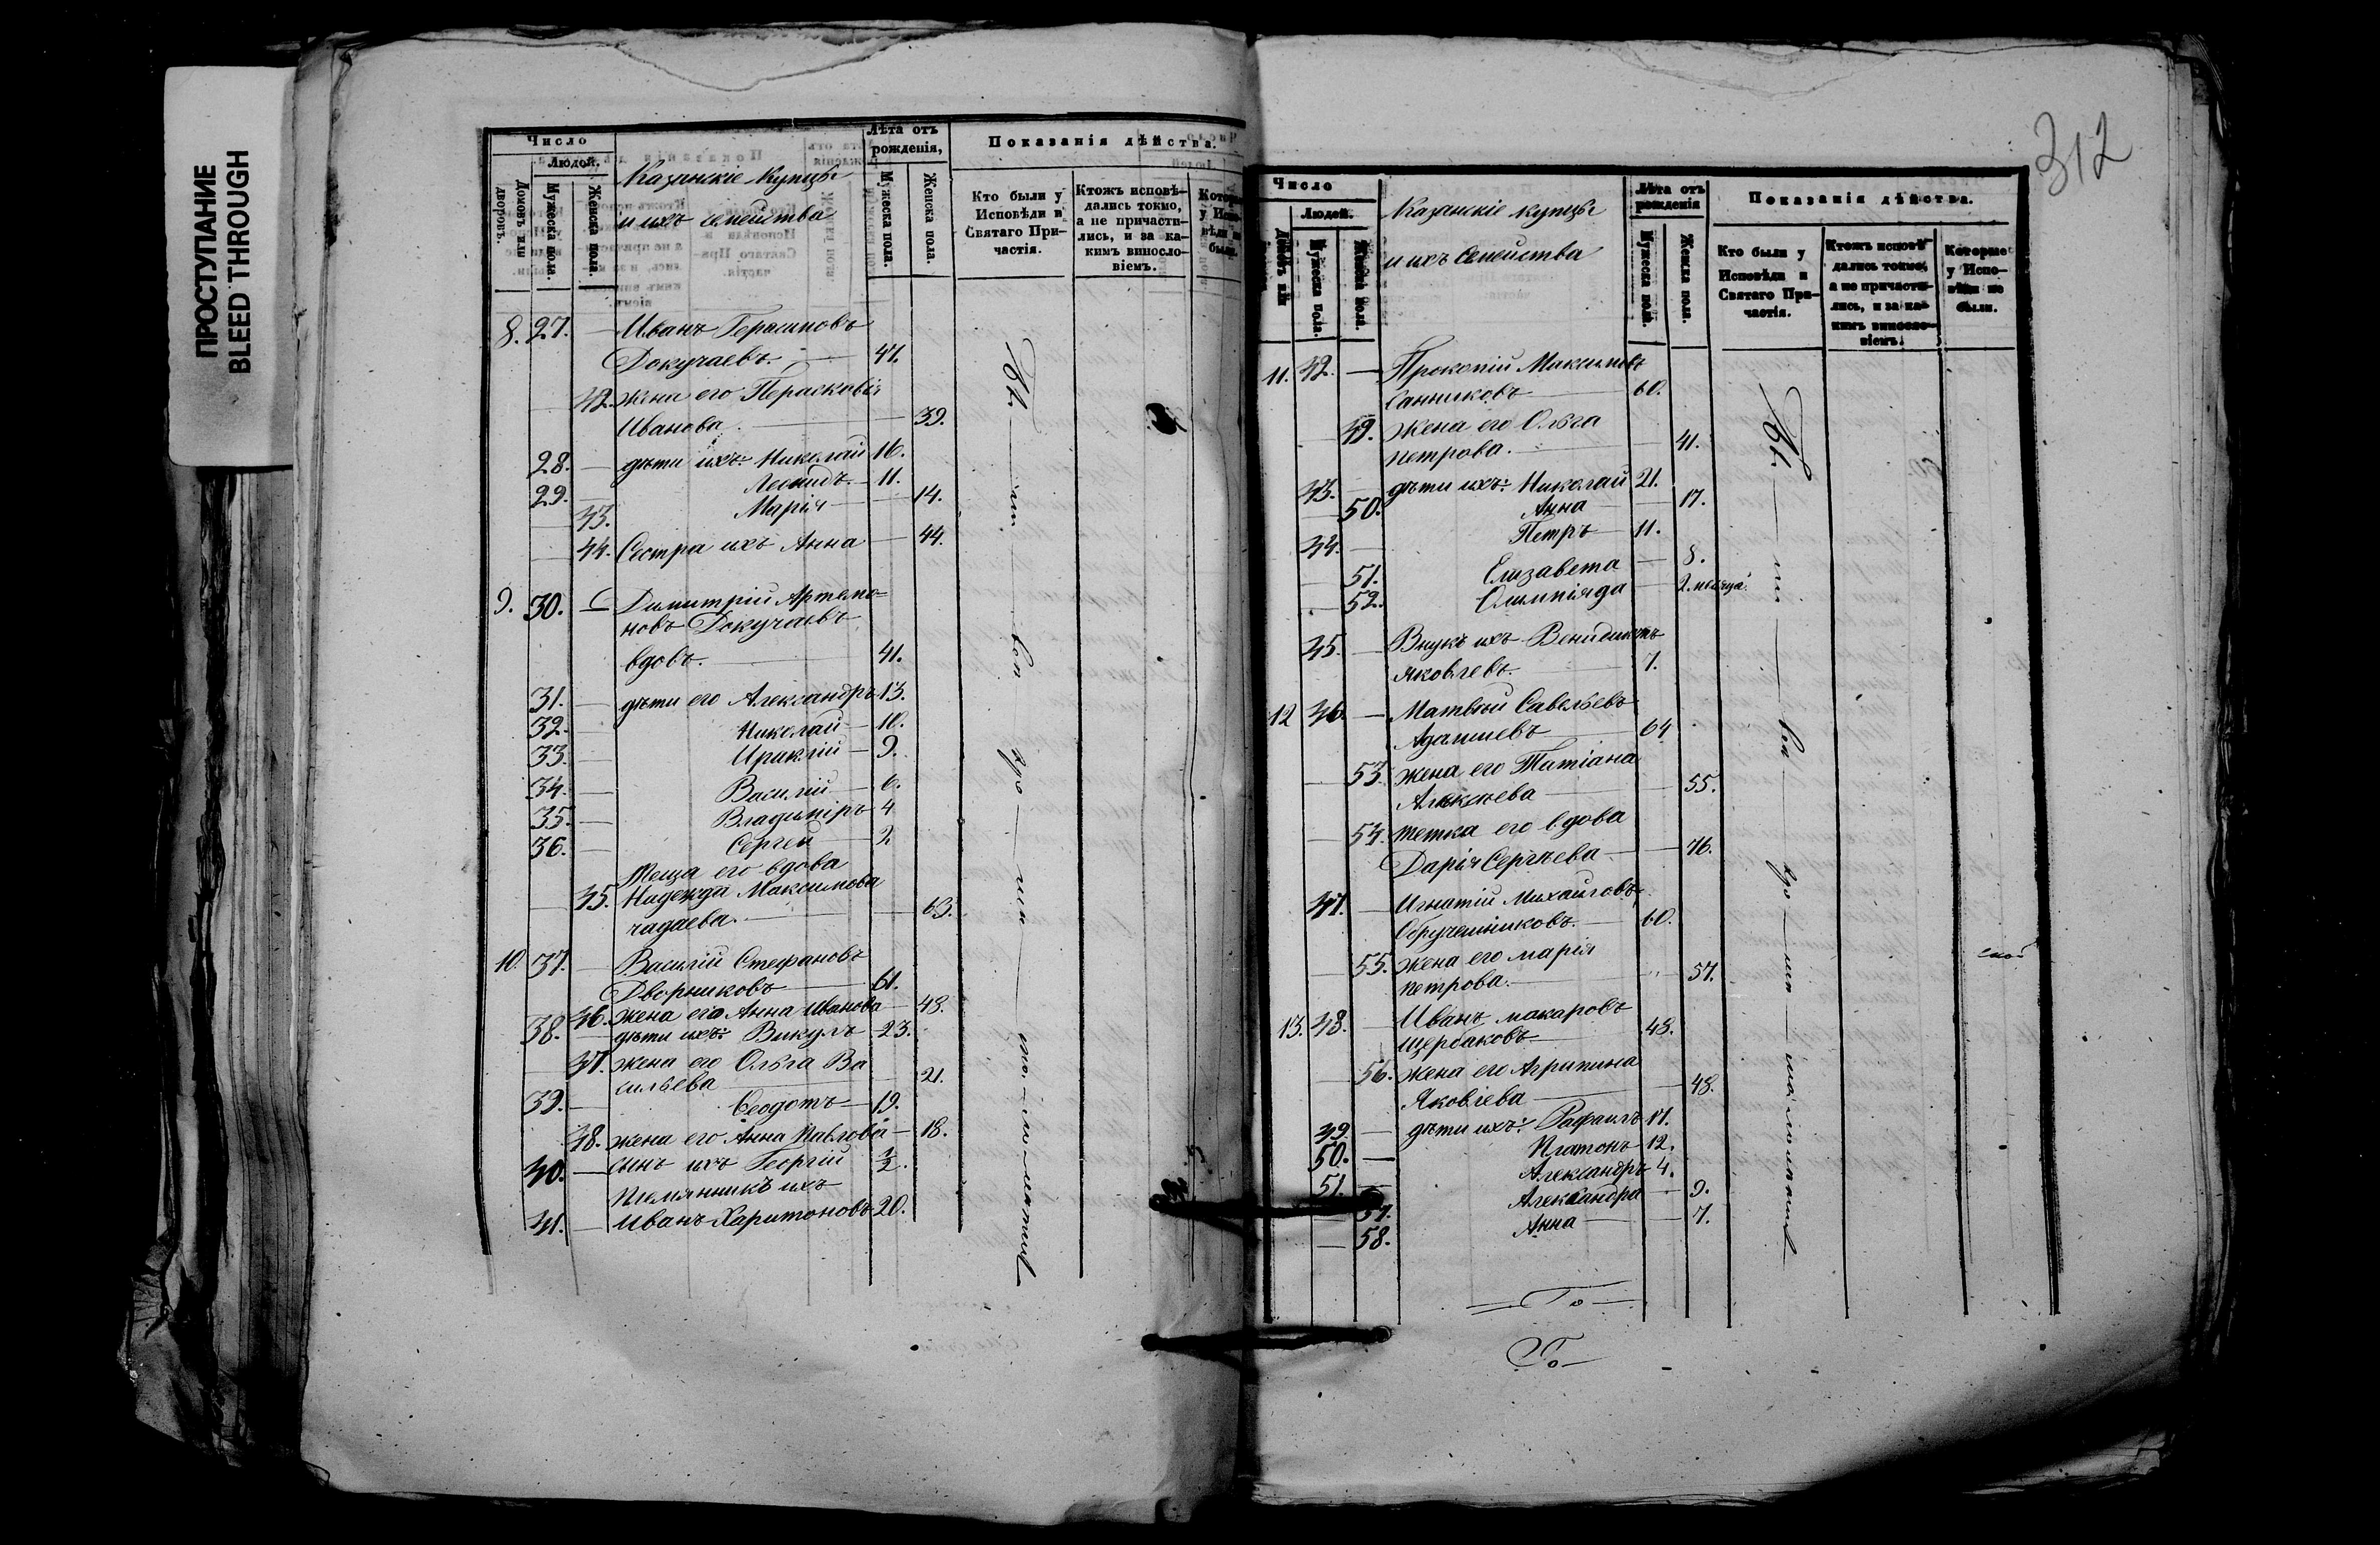 ПРОСТУПАНИЕ
BLEED THROUGH
312
Число
Людой.
Домовъ или дворовъ.
Мужеска пола.
Женска пола.
Казанскіе купцы
и ихъ семейства
Лѣта отъ
рожденія,
Мужеска пола.
Женска пола.
Показанія дѣйства.
Кто были у
Исповѣди и
Святаго При-
частія.
Ктожъ исповѣ-
дались токмо,
а не причасти-
лись, и за ка-
кимъ винословіемъ.
8. 27. — Иванъ Герасимовъ
Докучаевъ. — 47.
42. жена его Перасковія
Иванова. — 39.
28. — дѣти ихъ: Николай 16.
29. — Леонидъ. — 11.
43. Марія — 14.
44. Сестра ихъ Анна — 44.
9. 30. — Димитрій Артемо-
новъ Докучаевъ
вдовъ. — 41.
31. — дѣти его Александръ 13.
32. — Николай — 10.
33. — Ираклій — 9.
34. — Василій — 6.
35. — Владиміръ 4
36. — Сергей — 2
Теща его вдова
45. Надежда Максимова
чадаева. — 63.
10. 37. — Василій Стефановъ
Дворниковъ — 61.
46. жена его Анна Иванова — 48.
38. — дѣти ихъ: Викулъ — 23.
47. жена его Ольга Ва
сильева — 21.
39. — Феодотъ — 19.
48. жена его Анна Павлова — 18.
40. — сынъ ихъ Георгій ½.
Племянникъ ихъ
41. — Иванъ Харитоновъ 20.
Число
Людей.
Мужеска пола.
Женска пола.
Казанскіе купцы
и ихъ семейства
Лѣта отъ
рожденія
Мужеска пола.
Женска пола.
Показанія дѣйства.
Кто были у
Исповѣди и
Святаго При-
частія.
Ктожъ исповѣ-
дались токмо,
а не причасти-
лись, и за ка-
кимъ винословіемъ.
Которые
у Испо-
вѣди не
были.
11. 42. — Прокопій Максимовъ
Санниковъ — 60.
49. жена его Ольга
петрова. — 41.
43. — дѣти ихъ: Николай 21.
50. Анна — 17.
44. — Петръ — 11.
51. Елизавета — 8.
52. Олимпіяда — 2. месяца.
45. — Внукъ ихъ Венидиктъ
яковлевъ. — 7.
12 46. — Матвѣй Савельевъ
— 64
53. жена его Татіана
Алексѣева — 55.
54. тетка его вдова
Дарія Сергѣева — 76.
47. — Игнатій Михайловъ
— 60.
55. жена его марія
петрова. — 57.
13. 48. — Иванъ макаровъ
щербаковъ — 48.
56. жена его Агрипина
Яковлева — 48.
49. — дѣти ихъ: Рафаилъ 17.
50. — Платонъ 12.
51. — Александръ 4.
57. Александра — 9.
58. Анна — 7.